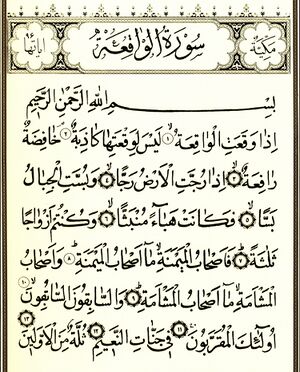 مكية سورة الواقعة آياتها ٩٦
بِسْمِ اللَّهِ الرَّحْمَٰنِ الرَّحِيمِ
إِذَا وَقَعَتِ الْوَاقِعَةُ ١ لَيْسَ لِوَقْعَتِهَا كَاذِبَةٌ ٢ خَافِضَةٌ
رَافِعَةٌ ٣ إِذَا رُجَّتِ الْأَرْضُ رَجًّا ٤ وَبُسَّتِ الْجِبَالُ
بَسًّا ٥ فَكَانَتْ هَبَاءً مُنْبَثًّا ٦ وَكُنْتُمْ أَزْوَاجًا
ثَلَاثَةً ٧ فَأَصْحَابُ الْمَيْمَنَةِ مَا أَصْحَابُ الْمَيْمَنَةِ ٨ وَأَصْحَابُ
الْمَشْأَمَةِ مَا أَصْحَابُ الْمَشْأَمَةِ ٩ وَالسَّابِقُونَ السَّابِقُونَ ١٠
أُولَٰئِكَ الْمُقَرَّبُونَ ١١ فِي جَنَّاتِ النَّعِيمِ ١٢ ثُلَّةٌ مِنَ الْأَوَّلِينَ ١٣